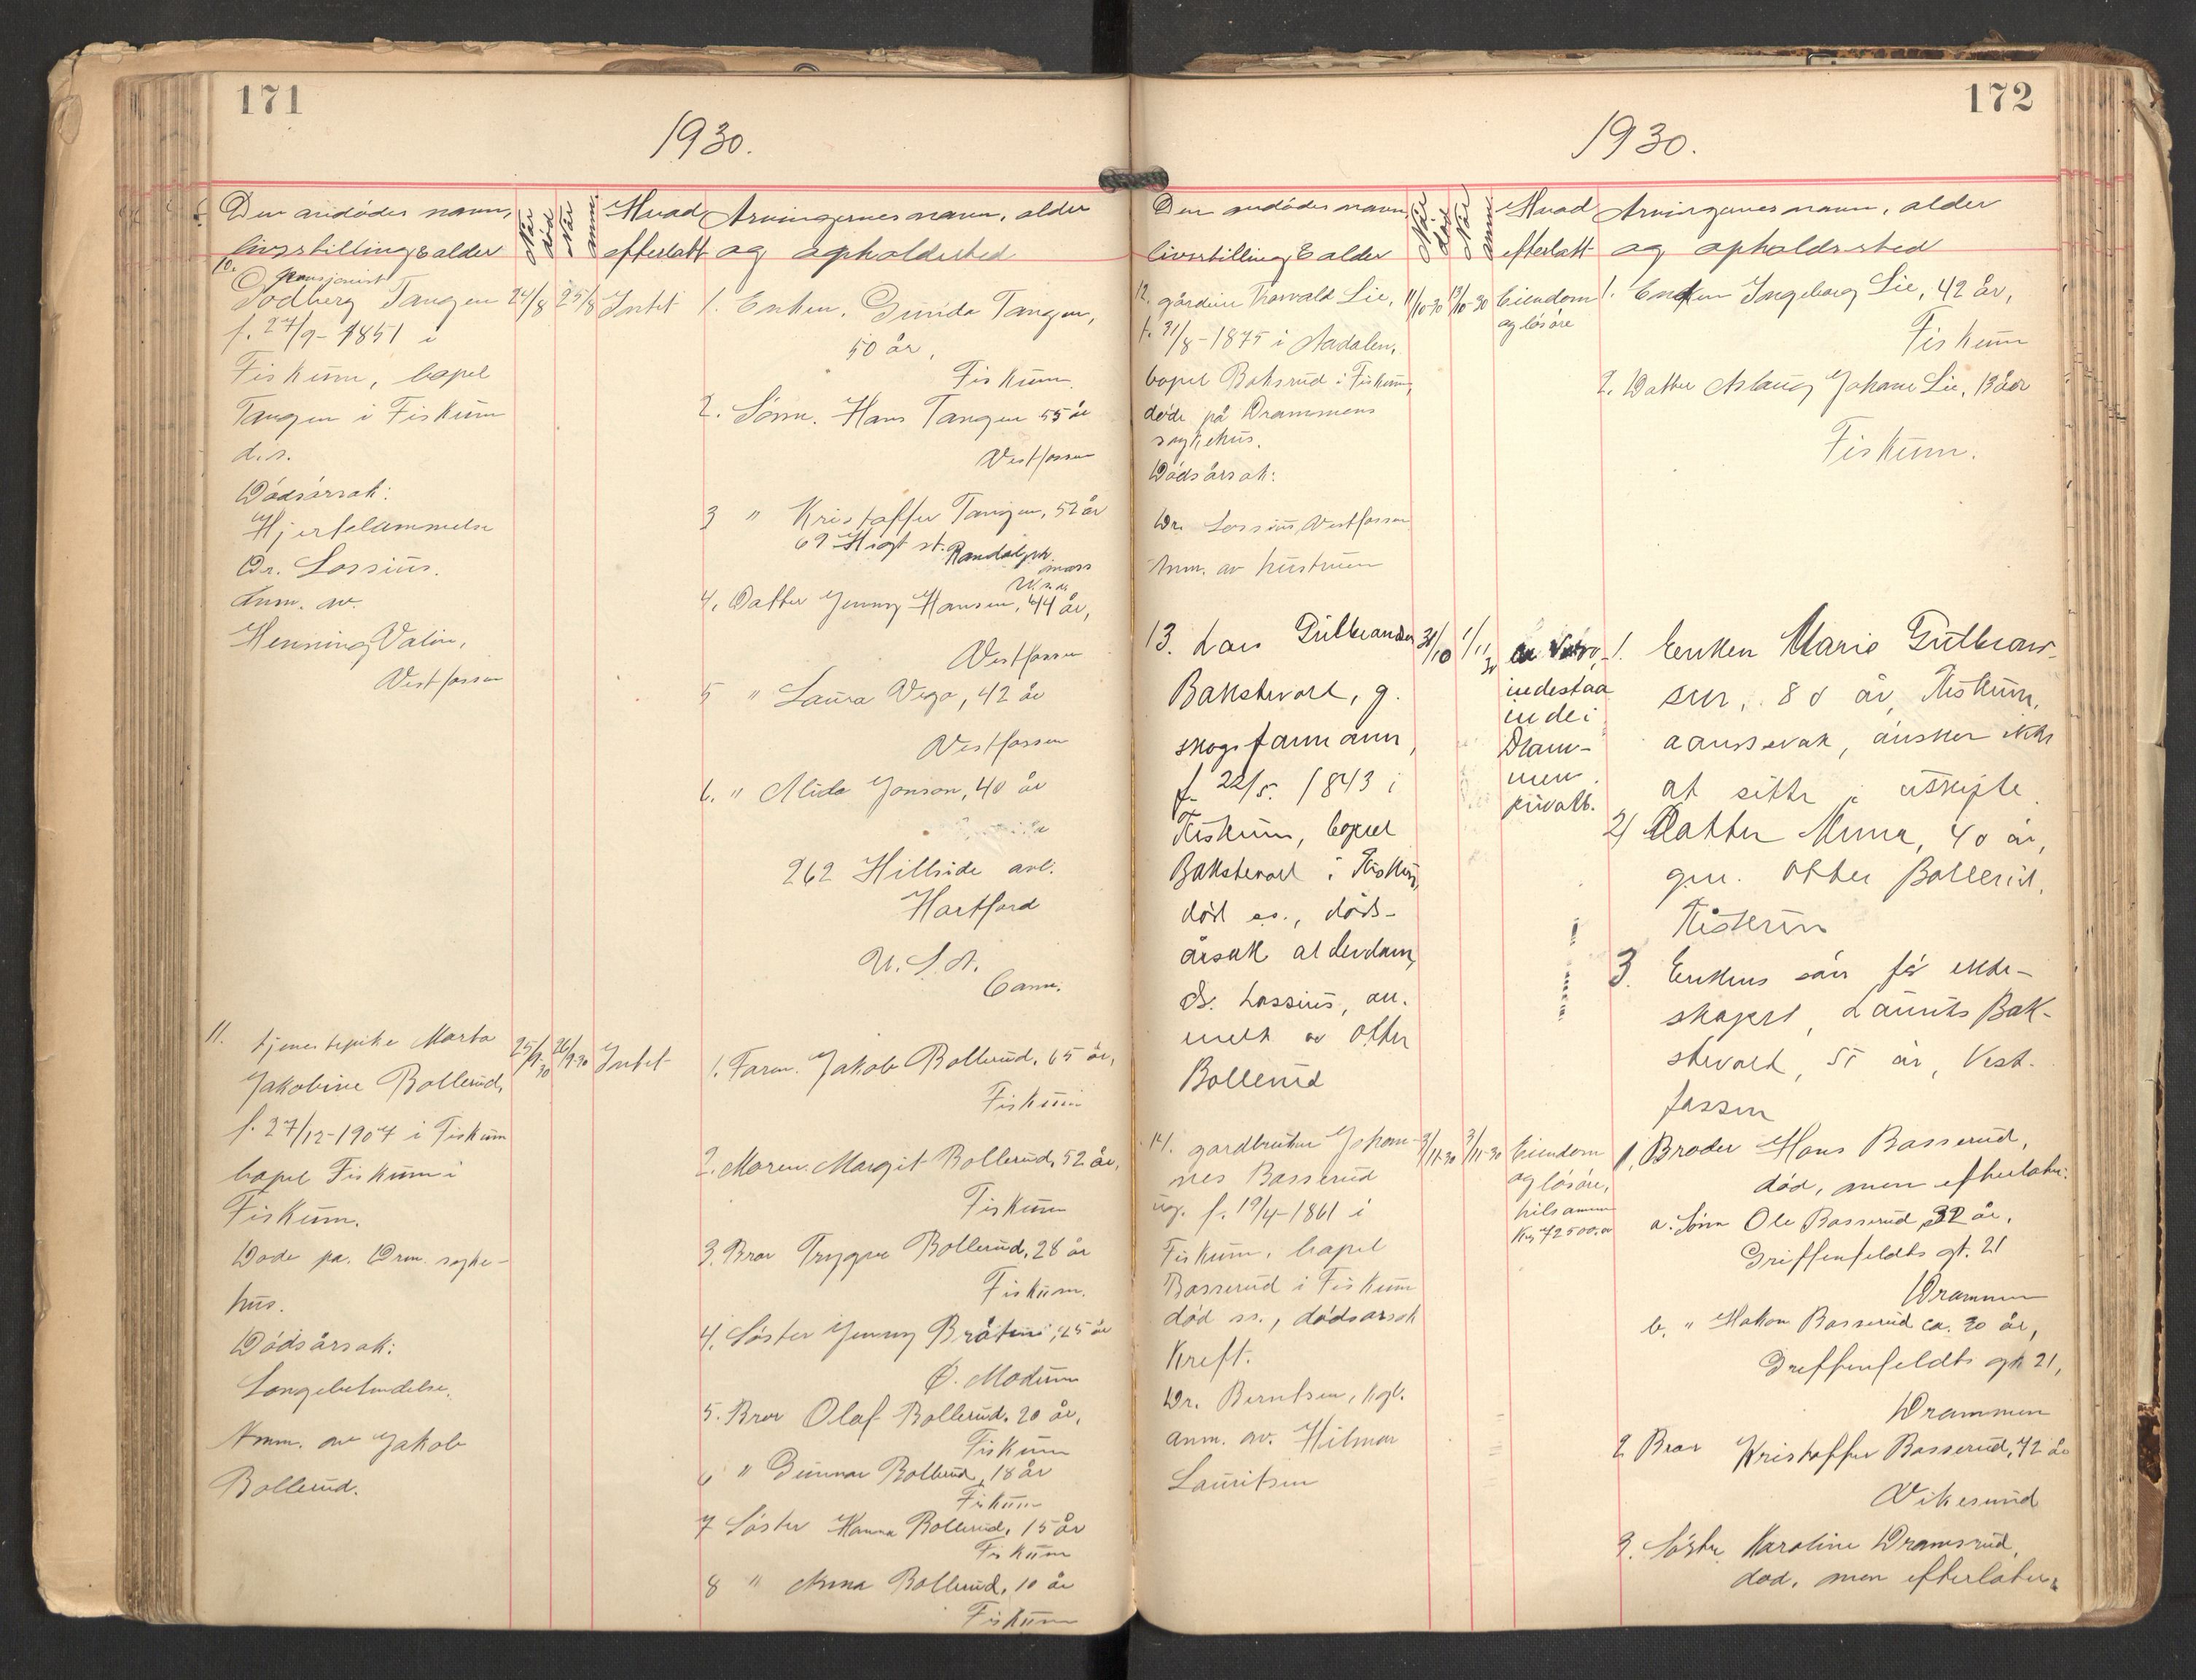 171
1930.
Den avdødes navn,
livsstilling & alder
Når
død
Når
anm.
Hvad
efterlatt
Arvingernes navn, alder
og opholdssted
10.
pensjonist
Godberg Tangen
24/8
25/8
Intet
f. 27/9-1851 i
Fiskum, bopel
Tangen i Fiskum
d.s.
Dødsårsak:
Hjertelammelse
Dr. Lossius.
Anm. av.
Henning
Vestfossen
1. Enken. Gunda Tangen,
50 år,
Fiskum.
2. Sønn. Hans Tangen 55 år
Vestfossen
3 " Kristoffer Tangen, 52 år
69 st. Randolph
mass
U.S.A.
4. Datter Jenny Hansen, 44 år,
Vestfossen
5 " Laura Vego, 42 år
Vestfossen
6. " Alida Jonson, 40 år
262 Hillside ave.
Hartford
U.S.A.
Conn.
11. tjenestepike Marta
25/9-30
26/9-30
Intet
Jakobine Bollerud,
f. 27/12-1907 i Fiskum
bopel Fiskum i
Fiskum.
Døde på. Drm. syke-
hus.
Dødsårsak:
Lungebetendelse.
Anm. av Jakob
Bollerud.
1. Faren. Jakob Bollerud, 65 år,
Fiskum
2. Moren. Margit Bollerud, 52 år,
Fiskum
3. Bror Trygve Bollerud, 28 år
Fiskum.
4. Søster Jenny Bråten, 25 år
Ø. Modum
5. Bror Olaf Bollerud. 20 år,
Fiskum
6 " Gunnar Bollerud, 18 år
Fiskum
7 Søster Hanna Bollerud, 15 år
Fiskum
8 " Anna Bollerud, 10 år
Fiskum
172
1930.
Den avdødes navn
livsstilling & alder
Når
død
Når
anm.
Hvad
efterlatt
Arvingernes navn, alder
og opholdssted
12. gårdeier Thorvald Lie,
11/10-30
13/10-30
Eiendom
og løsøre
f. 31/8-1875 i Aadalen,
bopel Baksrud i Fiskum,
døde på Drammens
sykehus.
Dødsårsak:
Dr. Lossius, Vestfossen
Anm. av hustruen
1. Enken Ingeborg Lie, 42 år,
Fiskum
2. Datter Aslaug Johane Lie, 13 år
Fiskum.
13. Lars Gulbrandsen
31/10
1/11
30
indestaa
ende i
Dram-
men
privatb.
Bakstevold, g.
skogsfarmann,
f. 22/5. 1843 i
Fiskum, bopel
Bakstevold i Fiskum,
død ss., døds-
årsak alderdom,
Dr. Lossius, an-
meldt av Otter
Bollerud
1. Enken Marie Gulbrand-
sen, 80 år, Fiskum,
aandssvak, ønsker ikke
at sitte i uskifte.
2) Datter Anna, 40 år,
gm. Otter Bollerud,
Fiskum
3. Enkens søn før ekte-
skapet, Laurits Bak-
stevold, 55 år, Vest-
fossen
14. gardbruker Johan-
nes Basserud
3/11-30
3/11-30
Eiendom
og løsøre,
tilsamen
Kr. 72500,00
ug. f. 19/4-1861 i
Fiskum, bopel
Basserud i Fiskum
død ss., dødsårsak
Kreft.
Dr. Berntsen, Kgb.
anm. av. Hilmar
Lauritsen
1. Broder Hans Basserud,
død, men efterlater:
a. Sønn Ole Basserud 32 år,
Griffenfeldts gt. 21
Drammen
b. " Håkon Basserud ca. 30 år,
Greffenfeldts gt 21,
Drammen
2 Bror Kristoffer Basserud, 72 år
Vikesund
3. Søster Karoline Dramsrud,
død, men efterlater